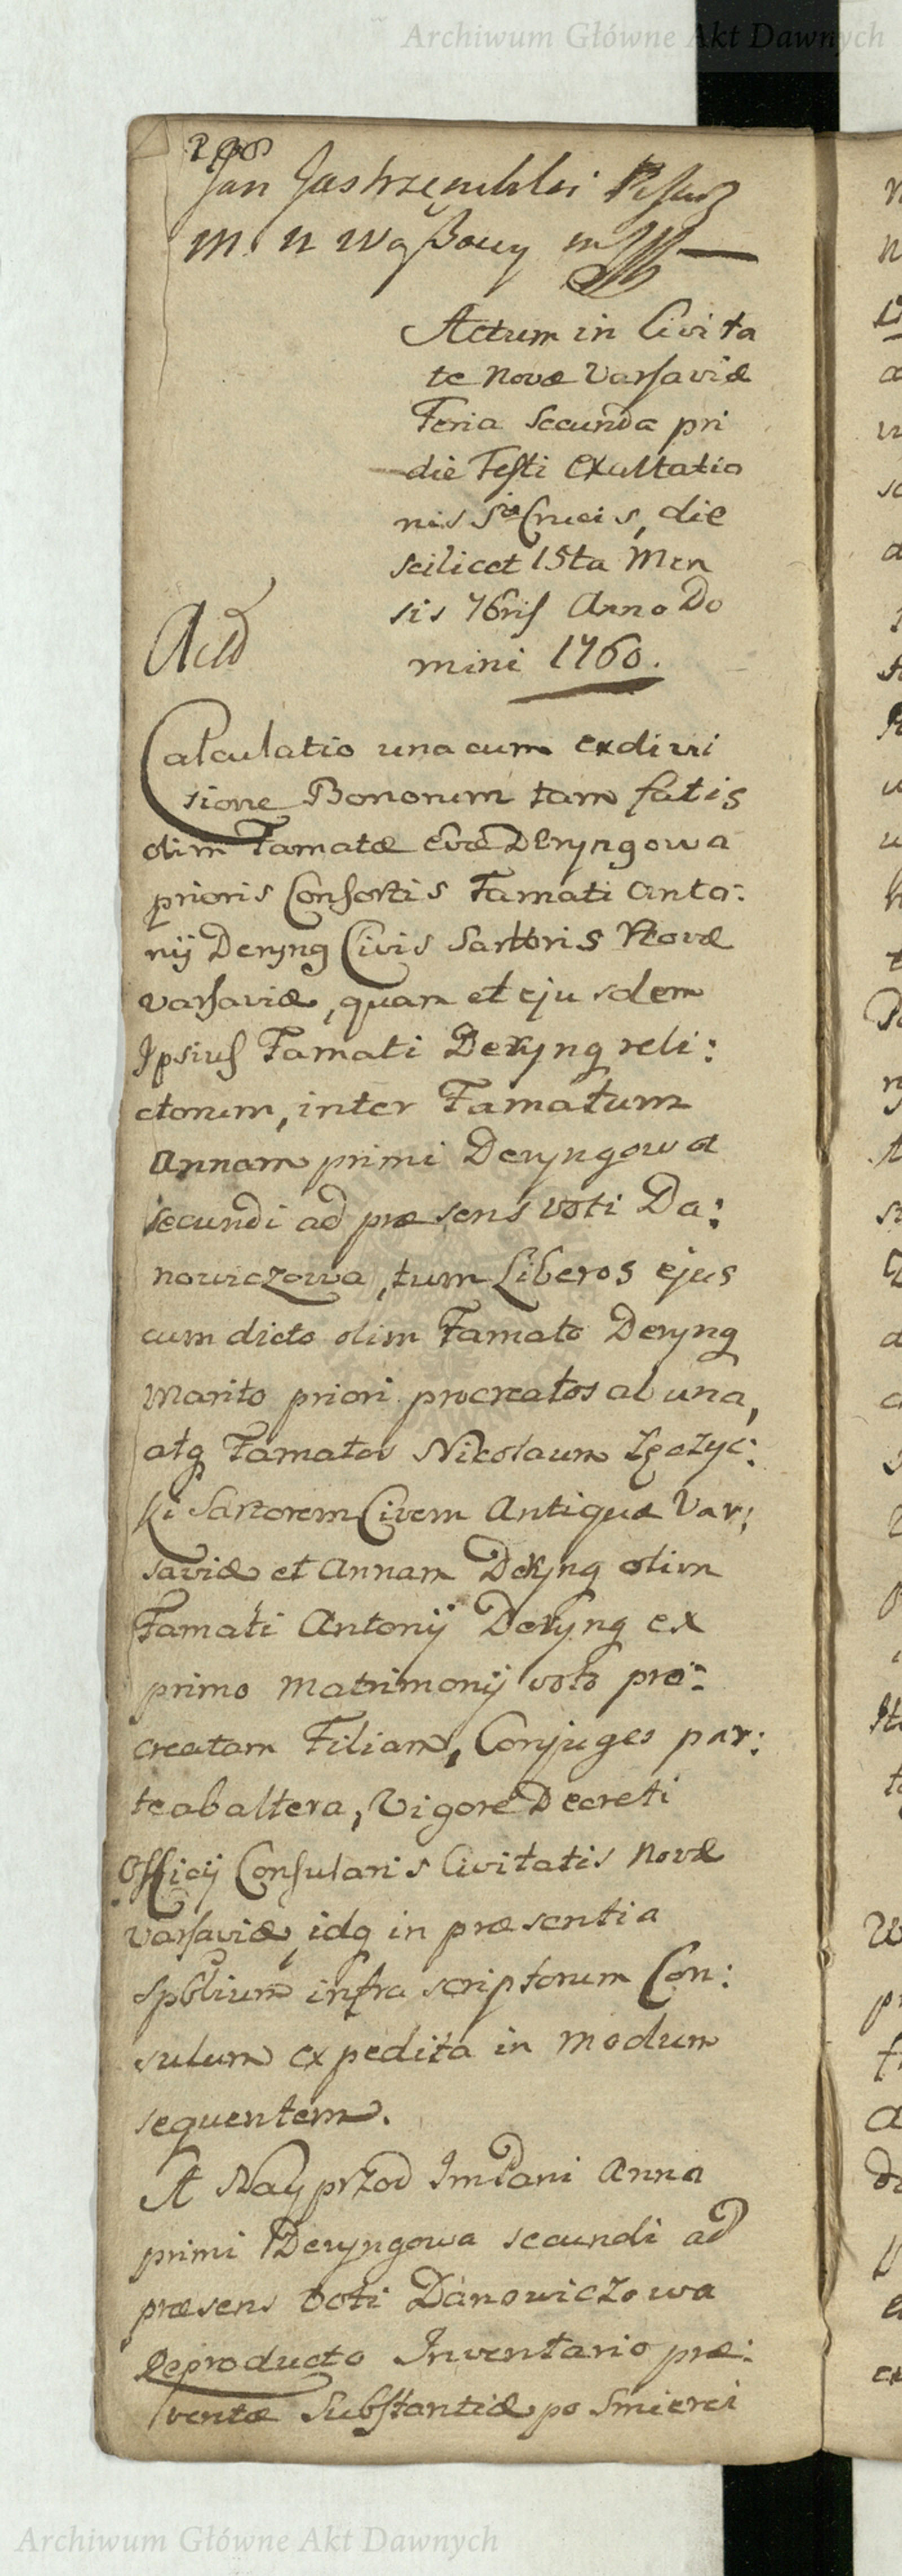 Archiwum Główne Akt Dawnych
Jan Jastrzęmbski Pisarz
m. n Waszawy mpp
Actum in Civita
te Novæ Varsaviæ
Feria Secunda pri
die Festi Exultatio
nis S. Crucis, die
scilicet 15ta Men
sis 76ris Anno Do
mini 1760.
Calculatio una cum exdivi
sione Bonorum tam fatis
olim Famatæ Evæ Deryngowa
prioris Consortis Famati Anto:
nij Deryng Civis Sartoris Novæ
Varsaviæ, quam et ejusdem
Ipsius Famati Deryng reli:
ctorum, inter Famatum
Annam primi Deryngowa
secundi ad præsens voti Da:
nowiczowa, tum Liberos ejus
cum dicto olim Famato Deryng
Marito priori procreatos ab una,
atq Famatos Nicolaum
ki Sartorem Civem Antiquæ Var:
saviæ et Annam Deryng olim
Famati Antonij Deryng ex
primo Matrimonij voto pro:
creatam Filiam, Conjuges par:
te ab altera, Vigore Decreti
Officij Consularis Civitatis Novæ
Varsaviæ, idq in præsentia
Spblium infra scriptorum Con:
sulum expedita in modum
sequentem.
A Nayprzod ImPani Anna
primi Deryngowa secundi ad
præsens voti Danowiczowa
Reproducto Inventario præ:
ventæ Substantiæ po Smierci
Archiwum Główne Akt Dawnych